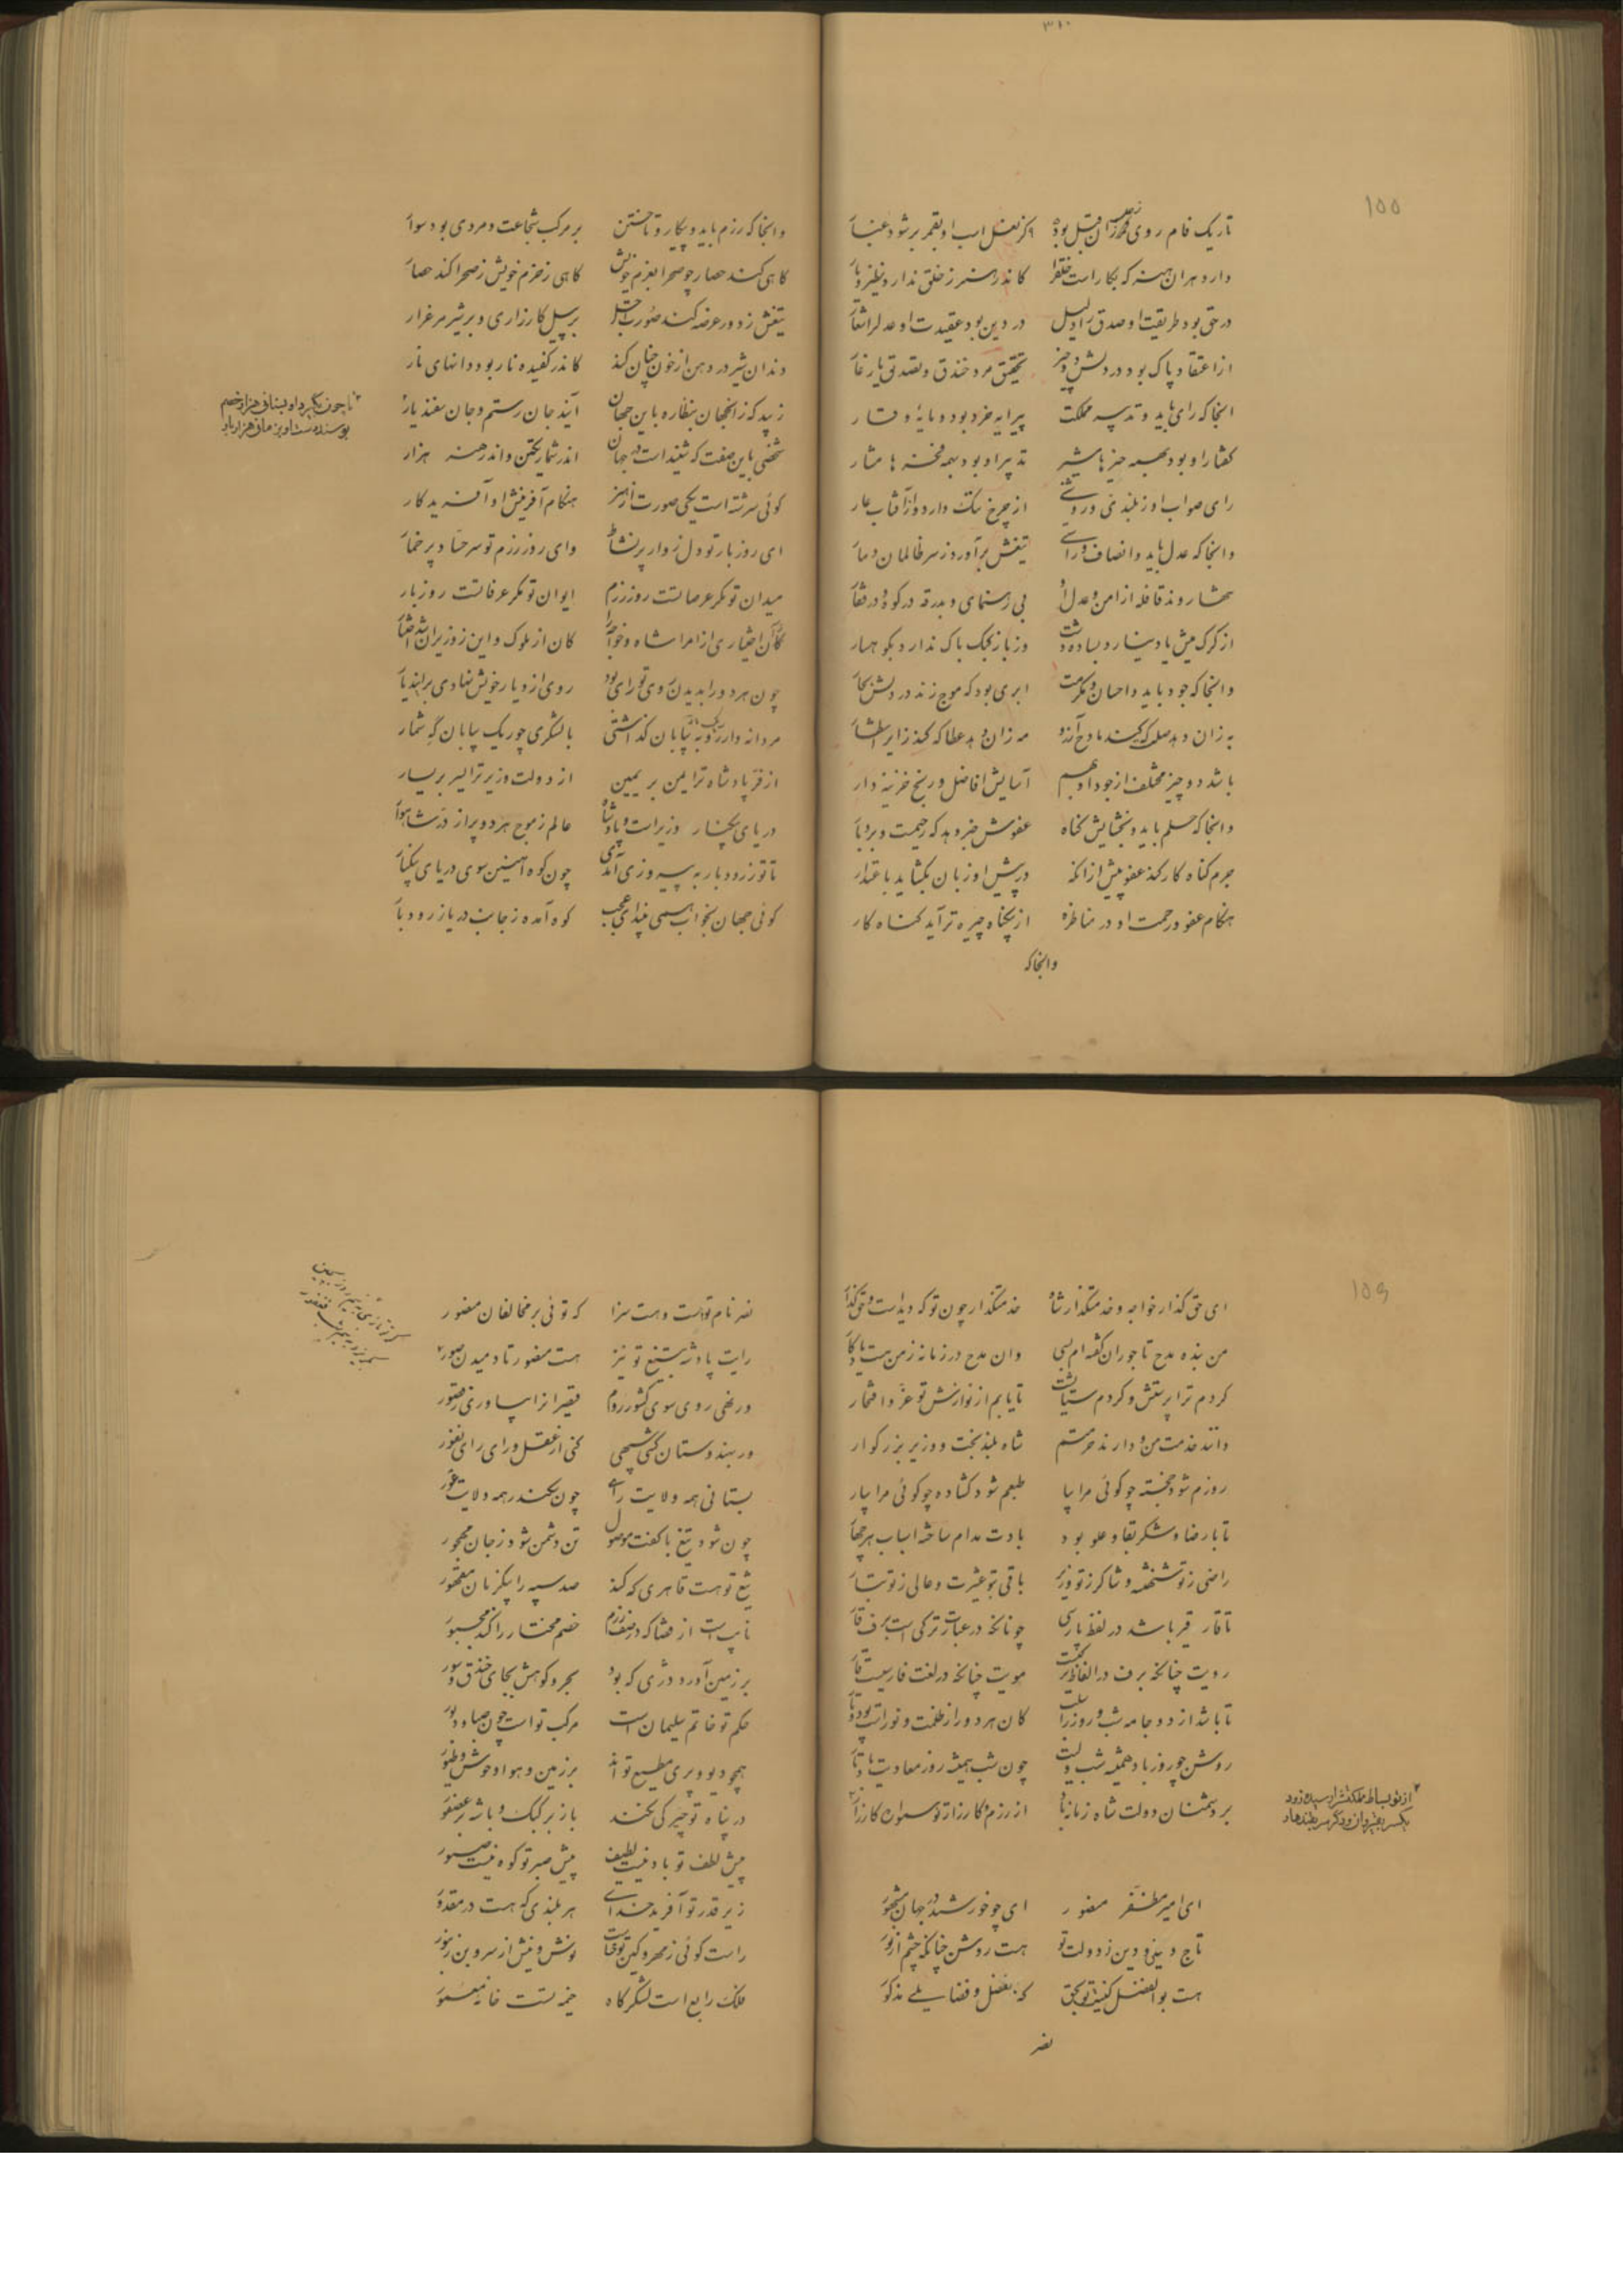 ۳۱۰
۱۵۵
تاریک فام روی قمر زان قبل بود کز نعل اسب او بقمر بر شود غبار
دارد هر آن هنر که بکار است خلق را کاندر هنر ز خلق ندارد نظیر و یار
در حق بود طریقت او صدق را دلیل در دین بود عقیدت او عدل را شعار
از اعتقاد پاک بود در دلش دو چیز تحقیق مرد خندق و تصدیق یار غار
آنجا که رای باید و تدبیر مملکت پیرایه خرد بود و مایه وقار
گفتار او بود بهمه چیزها مشیر تدبیر او بود بهمه فخرها مشار
رای صواب او ز بلندی و روشنی از چرخ ننگ دارد و از آفتاب عار
وانجا که عدل باید و انصاف و راستی تیغش برآورد ز سر ظالمان دمار
تنها رونده قافله از امن و عدل او بی رهنمای و بدرقه در کوه و در قفار
از گرگ میش یاد نیارد بساده دشت وز باز کبک باک ندارد بکوهسار
وانجا که جود باید و احسان و مکرمت ابری بود که موج زند در دلش بحار
به زان دهد صله که کند مادح آرزو مه زان دهد عطا که کند زایر انتظار
باشد دو چیز مختلف از جود او بهم آسایش افاضل و رنج خزینه دار
وانجا که حلم باید و بخشایش گناه عفوش خبر دهد که رحیمست و بردبار
جرم گناه کار کند عفو پیش از آنکه در پیش او زبان بگشاید باعتذار
هنگام عفو و رحمت او در مناظره از بیگناه چیره تر آید گناه کار
وانجا که
وانجا که رزم باید و پیکار و تاختن بر مرکب شجاعت و مردی بود سوار
گاهی کند حصار چو صحرا بعزم خویش گاهی ز حزم خویش ز صحرا کند حصار
تیغش ز دور عرضه کند صورت اجل بر پیل کارزاری و بر شیر مرغزار
دندان شیر در دهن از خون چنان کند کاندر کفیده نار بود دانهای نار
زیبد که زانجهان بنظاره باین جهان آیند جان رستم و جان سفندیار
شخصی باین صفت که شنیدست در جهان اندر شمار یکتن و اندر هنر هزار
گوئی سرشته است یکی صورت از هنر هنگام آفرینش او آفریدگار
ای روز بار تو دل زوار پر نشاط وای روز رزم تو سر حساد پر خمار
میدان تو مگر عرصاتست روز رزم ایوان تو مگر عرفاتست روز بار
کان از ملوک و این ز وزیران شد اختیار
چون هر دو را بدیدن روی تو رای بود روی از دیار خویش نهادی براین دیار
مردانه وار بیابان گذاشتی با لشکری چو ریک بیابان گه شمار
از فر پادشاه ترا یمن بر یمین از دولت وزیر ترا یسر بر یسار
دریای بیکنار وزیرست و پادشاه عالم ز موج هر دو پر از در شاهوار
تا تو ز رودبار به پیروزی آمدی چون کوه آهنین سوی دریای بیکنار
گوئی جهان بخواب همی بیند ای عجب کوه آمده ز جانب دریا ز رودبار
۲ تا چون بگیرد او بسنانی هزار خصم
بوسند دست او بزمانی هزار بار
۱۵۶
ای حق گذار خواجه و خدمتگذار شاه خدمتگذار چون تو که دیدست و حق گذار
من بنده مدح تاجوران گفته‌ام بسی وان مدح در زمانه ز من هست یادگار
کردم ترا پرستش و کردم ستایشت تا یابم از نوازش تو عز و افتخار
دانند خدمت من و دارند حرمتم شاه بلند بخت و وزیر بزرگوار
روزم شود خجسته چو گوئی مرا بیا طبعم شود گشاده چو گوئی مرا بیار
تا بار رضا و شکر بقا و علو بود بادت مدام ساخته اسباب هر چهار
راضی ز تو شهنشه و شاکر ز تو وزیر باقی بتو عشیرت و عالی ز تو تبار
تا قار قیر باشد در لفظ پارسی چونانکه در عبارت ترکیست برف قار
مویت چنانکه در لغت فارسیست قار
تا باشد از دو جامه شب و روز را سلب کان هر دو را ز ظلمت و نورست پود و تار
روشن چو روز باد همیشه شب ولیت چون شب همیشه روز معادیت باد تار
بر دشمنان دولت شاه زمانه باد از رزم کارزار تو سوان کارزار
۲ از تو بساط ملکت
ای امیر مظفر منصور ای چو خورشید در جهان مشهور
تاج دینی و دین ز دولت تو هست روشن چنانکه چشم از نور
هست بوالفضل کنیت تو بحق که بفضل و فضایلی مذکور
نصر
نصر نام تو است و هست سزا که توئی بر مخالفان منصور
رایت پادشه بتیغ تو نیز هست منصور تا دمیدن صور
ور نهی روی سوی کشور روم قیصران را بیاوری ز قصور
ور بهندوستان کشی سپهی کنی از عقل و رای رای نفور
بستانی همه ولایت رای چون سکندر همه ولایت فور
چون شود تیغ با کفت موصول تن دشمن شود ز جان مهجور
تیغ تو هست قاهری که کند صد سپه را بیک زمان مقهور
نایبست از قضا که در صف رزم خصم مختار را کند مجبور
بر زمین آورد دژی که بود بحر و کوهش بجای خندق و سور
حکم تو خاتم سلیمان است مرکب تو است چون صبا و دبور
همچو دیو و پری مطیع تو اند بر زمین و هوا وحوش و طیور
در پناه تو چیرگی بکند باز بر کبک و باشه بر عصفور
پیش لطف تو باد نیست لطیف پیش صبر تو کوه نیست صبور
زیر قدر تو آفرید خدای هر بلندی که هست در مقدور
راست گوئی ز مهر و کین تو خاست نوش و نیش از سرو بن زنبور
فلک رابع است لشکرگاه خیمه تست خانه معمور